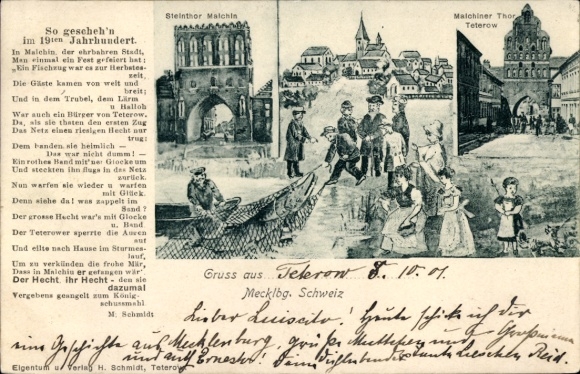 So gescheh'n
im 19ten Jahrhundert.
In Malchin, der ehrbahren Stadt,
Man einmal ein Fest gefeiert hat;
„Ein Fischzug war es zur Herbstes-
zeit,
Die Gäste kamen von weit und
breit;
Und in dem Trubel, dem Lärm
u Halloh
War auch ein Bürger von Teterow.
Da, als sie thaten den ersten Zug
Das Netz einen riesigen Hecht nur
trug;
Dem banden sie heimlich —
Das war nicht dumm! —
Ein rothes Band mit'ne: Glocke um
Und steckten ihn flugs in das Netz
zurück.
Nun warfen sie wieder u warfen
mit Glück.
Denn siehe da! was zappelt im
Sand?
Der grosse Hecht war's mit Glocke
u. Band
Der Teterower sperrte die Augen
auf
Und eilte nach Hause im Sturmes-
lauf,
Um zu verkünden die frohe Mär,
Dass in Malchin er gefangen wär'
Der Hecht, ihr Hecht - den sie
dazumal
Vergebens geangelt zum König-
schussmahl.
M. Schmidt
Steinthor Malchin
Malchiner Thor
Teterow
Gruss aus Teterow 8. 10. 01.
Mecklbg. Schweiz
Lieber Luiscito! Heute schick ich der
eine Geschichte aus Mecklenburg, grüße Muttchen und Grossmama
und auch Ernesto! Deine Dich liebende Tante Lieschen Reid.
Eigentum u. Verlag H. Schmidt, Teterow